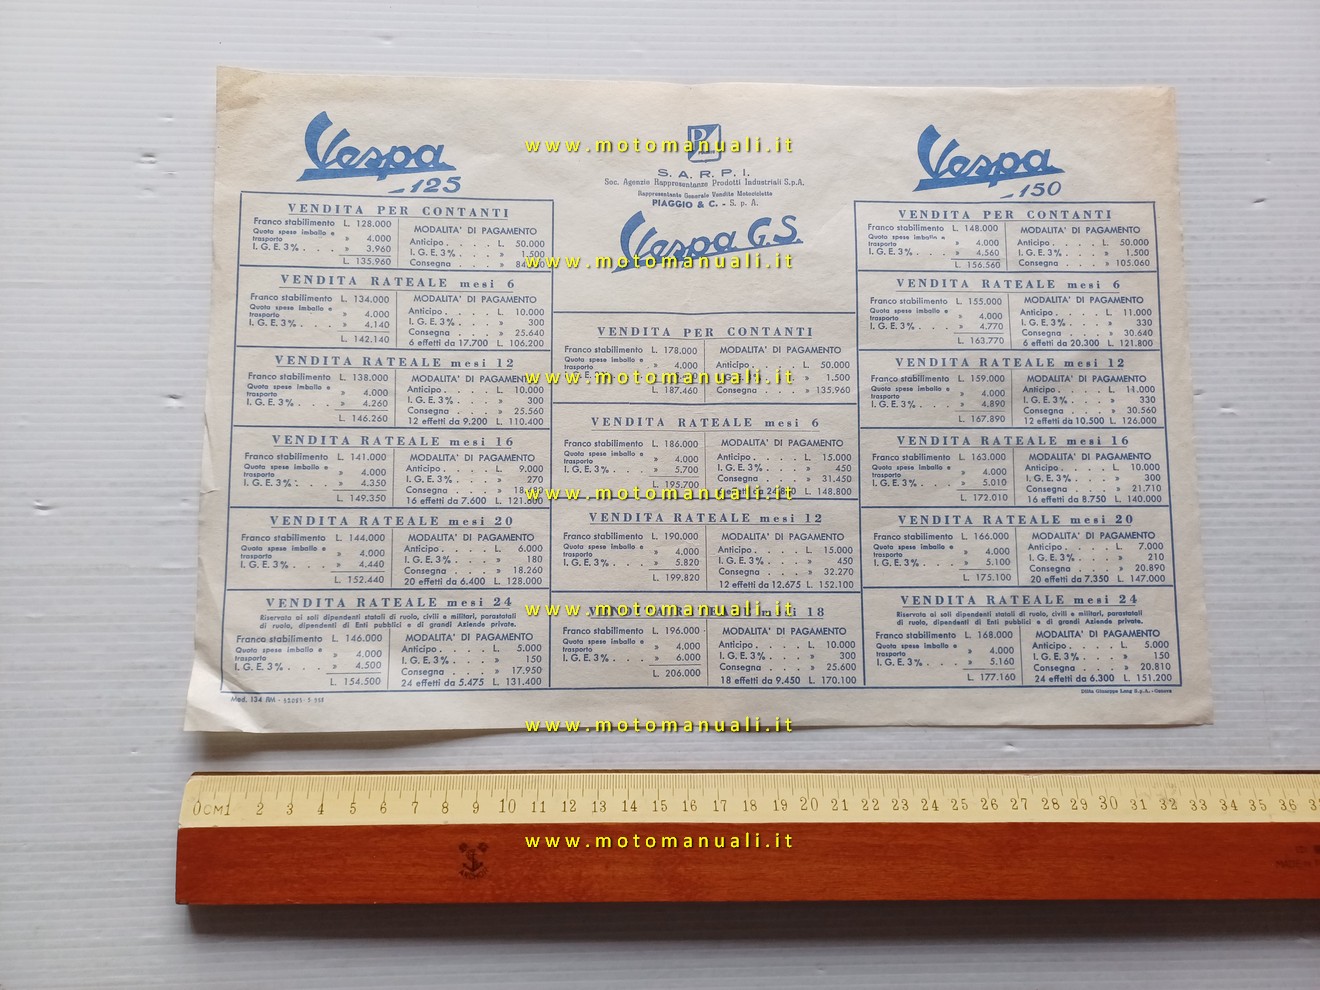 Vespa
125
VENDITA PER CONTANTI
Franco stabilimento L. 128.000
Quota spese imballo e trasporto » 4.000
I. G. E. 3% . . . » 3.960
L. 135.960
MODALITA' DI PAGAMENTO
Anticipo . . . . L. 50.000
I. G. E. 3% . . . » 1.500
Consegna . . . »
VENDITA RATEALE mesi 6
Franco stabilimento L. 134.000
Quota spese imballo e trasporto » 4.000
I. G. E. 3% . . . » 4.140
L. 142.140
MODALITA' DI PAGAMENTO
Anticipo . . . . L. 10.000
I. G. E. 3% . . . » 300
Consegna . . . » 25.640
6 effetti da 17.700 L. 106.200
VENDITA RATEALE mesi 12
Franco stabilimento L. 138.000
Quota spese imballo e trasporto » 4.000
I. G. E. 3% . . . » 4.260
L. 146.260
MODALITA' DI PAGAMENTO
Anticipo . . . . L. 10.000
I. G. E. 3% . . . » 300
Consegna . . . » 25.560
12 effetti da 9.200 L. 110.400
VENDITA RATEALE mesi 16
Franco stabilimento L. 141.000
Quota spese imballo e trasporto » 4.000
I. G. E. 3% . . . » 4.350
L. 149.350
MODALITA' DI PAGAMENTO
Anticipo . . . . L. 9.000
I. G. E. 3% . . . » 270
Consegna . . . »
16 effetti da 7.600 L. 121.600
VENDITA RATEALE mesi 20
Franco stabilimento L. 144.000
Quota spese imballo e trasporto » 4.000
I. G. E. 3% . . . » 4.440
L. 152.440
MODALITA' DI PAGAMENTO
Anticipo . . . . L. 6.000
I. G. E. 3% . . . » 180
Consegna . . . » 18.260
20 effetti da 6.400 L. 128.000
VENDITA RATEALE mesi 24
Riservata ai soli dipendenti statali di ruolo, civili e militari, parastatali
di ruolo, dipendenti di Enti pubblici e di grandi Aziende private.
Franco stabilimento L. 146.000
Quota spese imballo e trasporto » 4.000
I. G. E. 3% . . . » 4.500
L. 154.500
MODALITA' DI PAGAMENTO
Anticipo . . . . L. 5.000
I. G. E. 3% . . . » 150
Consegna . . . » 17.950
24 effetti da 5.475 L. 131.400
Mod. 134 RM
S. A. R. P. I.
Soc. Agenzie Rappresentanze Prodotti Industriali S.p.A.
Rappresentante Generale Vendita Motociclette
PIAGGIO & C. - S. p. A.
Vespa G.S.
VENDITA PER CONTANTI
Franco stabilimento L. 178.000
Quota spese imballo e trasporto » 4.000
L. 187.460
MODALITA' DI PAGAMENTO
Anticipo . . . . L. 50.000
» 1.500
Consegna . . . » 135.960
VENDITA RATEALE mesi 6
Franco stabilimento L. 186.000
Quota spese imballo e trasporto » 4.000
I. G. E. 3% . . . » 5.700
L. 195.700
MODALITA' DI PAGAMENTO
Anticipo . . . . L. 15.000
I. G. E. 3% . . . » 450
Consegna . . . » 31.450
L. 148.800
VENDITA RATEALE mesi 12
Franco stabilimento L. 190.000
Quota spese imballo e trasporto » 4.000
I. G. E. 3% . . . » 5.820
L. 199.820
MODALITA' DI PAGAMENTO
Anticipo . . . . L. 15.000
I. G. E. 3% . . . » 450
Consegna . . . » 32.270
12 effetti da 12.675 L. 152.100
mesi 18
Franco stabilimento L. 196.000
Quota spese imballo e trasporto » 4.000
I. G. E. 3% . . . » 6.000
L. 206.000
MODALITA' DI PAGAMENTO
Anticipo . . . . L. 10.000
I. G. E. 3% . . . » 300
Consegna . . . » 25.600
18 effetti da 9.450 L. 170.100
Vespa
150
VENDITA PER CONTANTI
Franco stabilimento L. 148.000
Quota spese imballo e trasporto » 4.000
I. G. E. 3% . . . » 4.560
L. 156.560
MODALITA' DI PAGAMENTO
Anticipo . . . . L. 50.000
I. G. E. 3% . . . » 1.500
Consegna . . . » 105.060
VENDITA RATEALE mesi 6
Franco stabilimento L. 155.000
Quota spese imballo e trasporto » 4.000
I. G. E. 3% . . . » 4.770
L. 163.770
MODALITA' DI PAGAMENTO
Anticipo . . . . L. 11.000
I. G. E. 3% . . . » 330
Consegna . . . » 30.640
6 effetti da 20.300 L. 121.800
VENDITA RATEALE mesi 12
Franco stabilimento L. 159.000
Quota spese imballo e trasporto » 4.000
I. G. E. 3% . . . » 4.890
L. 167.890
MODALITA' DI PAGAMENTO
Anticipo . . . . L. 11.000
I. G. E. 3% . . . » 330
Consegna . . . » 30.560
12 effetti da 10.500 L. 126.000
VENDITA RATEALE mesi 16
Franco stabilimento L. 163.000
Quota spese imballo e trasporto » 4.000
I. G. E. 3% . . . » 5.010
L. 172.010
MODALITA' DI PAGAMENTO
Anticipo . . . . L. 10.000
I. G. E. 3% . . . » 300
Consegna . . . » 21.710
16 effetti da 8.750 L. 140.000
VENDITA RATEALE mesi 20
Franco stabilimento L. 166.000
Quota spese imballo e trasporto » 4.000
I. G. E. 3% . . . » 5.100
L. 175.100
MODALITA' DI PAGAMENTO
Anticipo . . . . L. 7.000
I. G. E. 3% . . . » 210
Consegna . . . » 20.890
20 effetti da 7.350 L. 147.000
VENDITA RATEALE mesi 24
Riservata ai soli dipendenti statali di ruolo, civili e militari, parastatali
di ruolo, dipendenti di Enti pubblici e di grandi Aziende private.
Franco stabilimento L. 168.000
Quota spese imballo e trasporto » 4.000
I. G. E. 3% . . . » 5.160
L. 177.160
MODALITA' DI PAGAMENTO
Anticipo . . . . L. 5.000
I. G. E. 3% . . . » 150
Consegna . . . » 20.810
24 effetti da 6.300 L. 151.200
Ditta Giuseppe Lang S.p.A. - Genova
www.motomanuali.it
www.motomanuali.it
www.motomanuali.it
www.motomanuali.it
www.motomanuali.it
www.motomanuali.it
www.motomanuali.it
0CM1 2 3 4 5 6 7 8 9 10 11 12 13 14 15 16 17 18 19 20 21 22 23 24 25 26 27 28 29 30 31 32 33 34 35 36